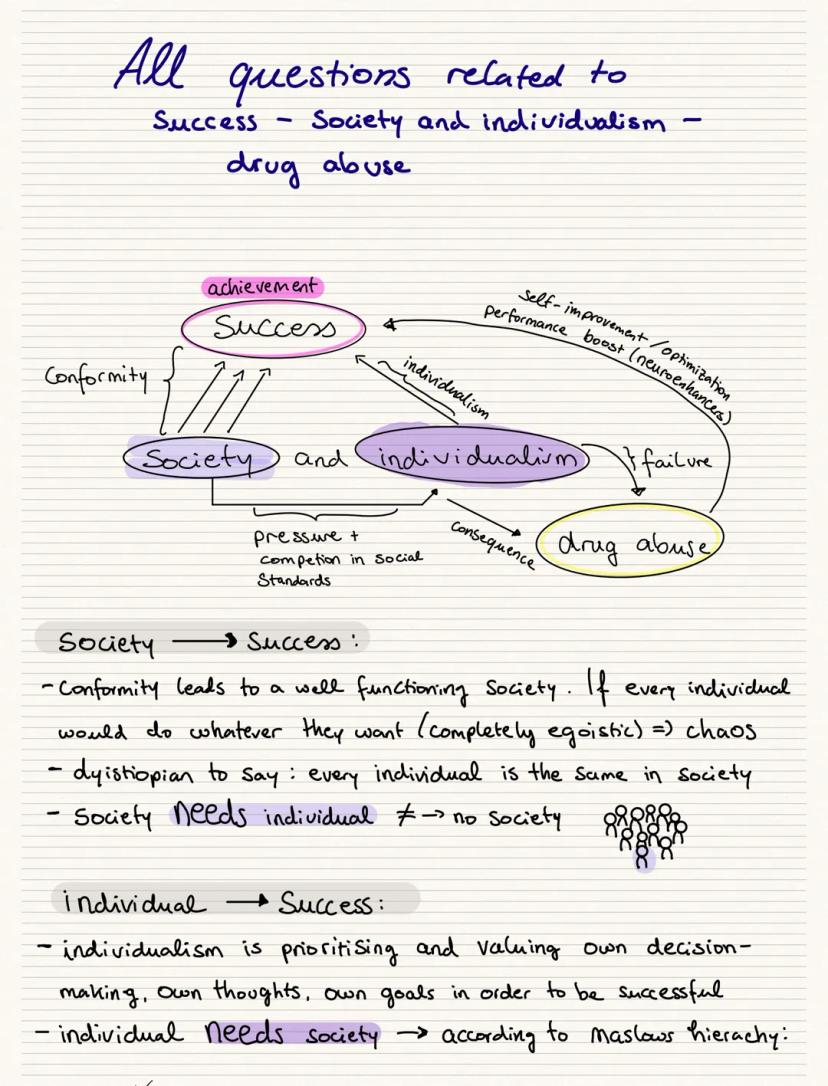 All questions related to
Success - Society and individualism -
drug abuse
achievement
Success
Self-improvement / optimization
Performance boost (neuroenhancers)
Conformity
individualism
Society and individualism
failure
pressure +
competion in social
Standards
consequence
drug abuse
Society → Success :
- Conformity leads to a well functioning society. If every individual
would do whatever they want (completely egoistic) => chaos
- dyistiopian to say : every individual is the same in society
- Society needs individual ≠ → no society
individual → Success :
- individualism is prioritising and valuing own decision-
making, own thoughts, own goals in order to be successful
- individual needs society → according to Maslows hierachy :